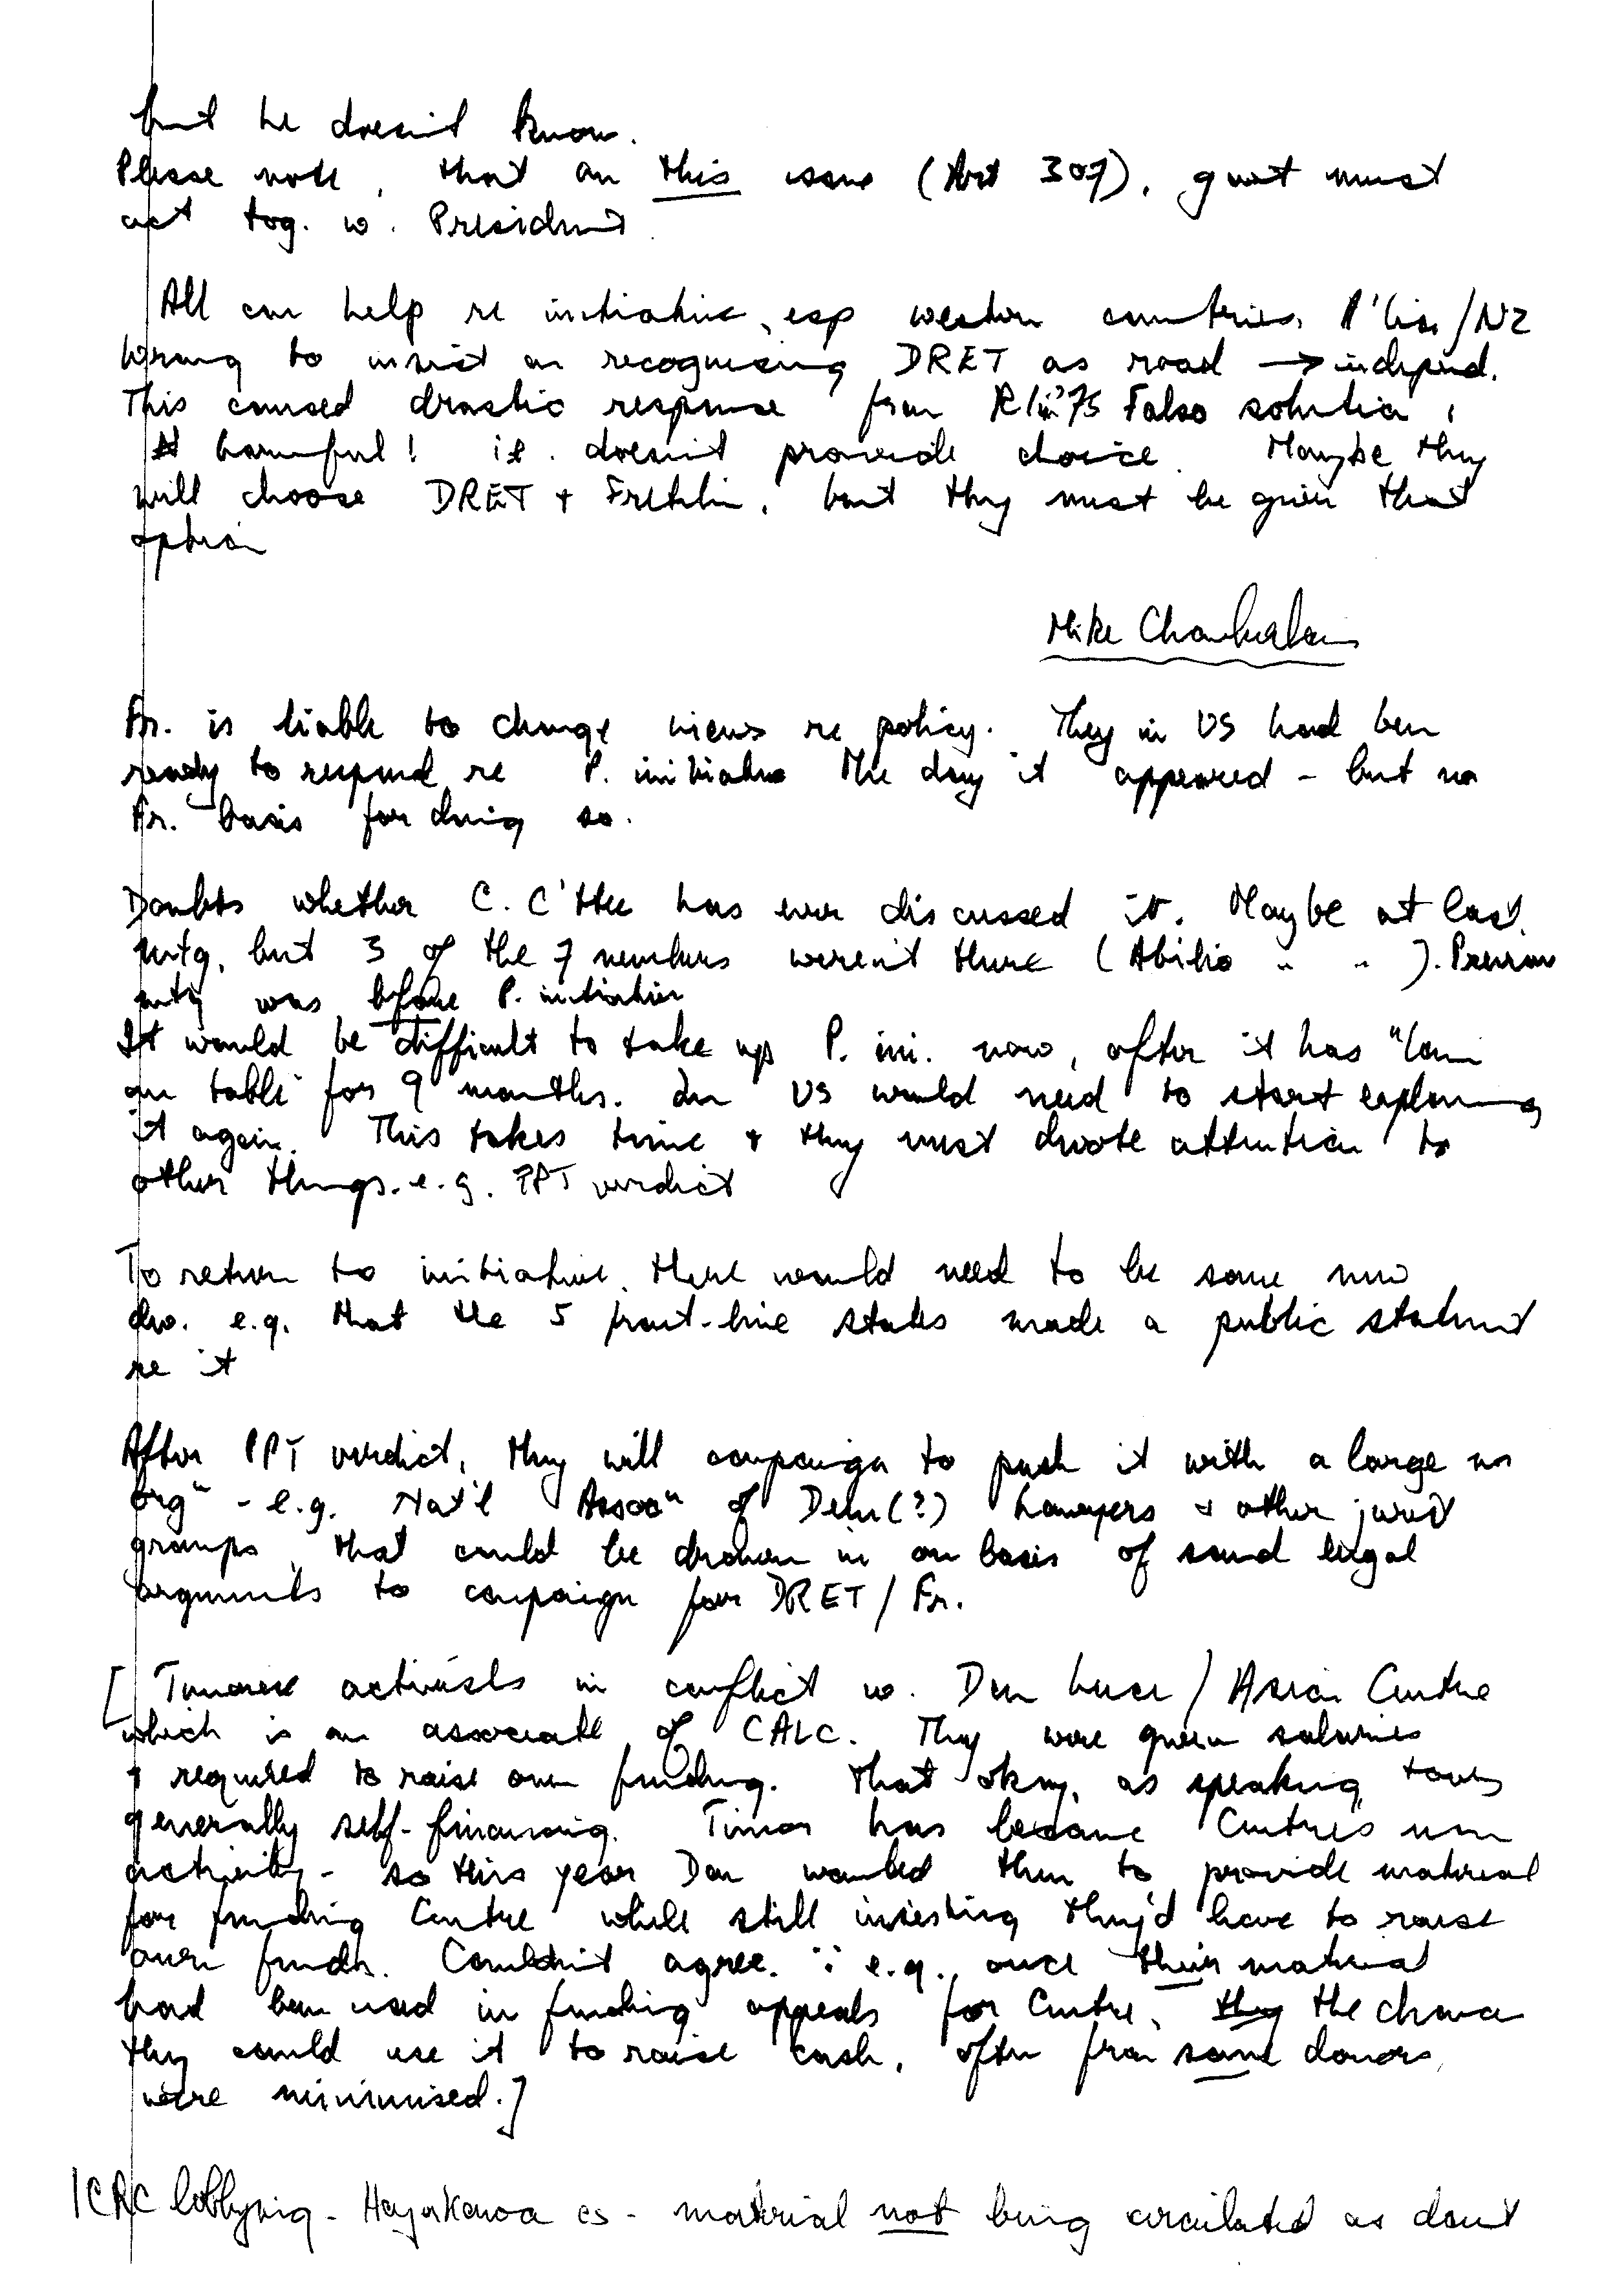 but he doesn't know.
Please note, that on this issue (Art 307), gvt must
act tog. w. President.
All can help re initiative, esp western countries. A'lia/NZ
wrong to insist on recognising DRET as road → independ.
This caused drastic response from RI in 75 False solution,
harmful! ie. doesn't provide choice. Maybe they
will choose DRET + Fretilin, but they must be given that
option
Mike Chamberlain
Fr. is liable to change views re policy. They in US had been
ready to respond re P. initiative the day it appeared - but no
Fr. basis for doing so.
Doubts whether C. C'ttee has ever discussed it. Maybe at last
mtg, but 3 of the 7 members weren't there (Abilio " " ). Previous
mtg was before P. initiative
It would be difficult to take up P. ini. now, after it has "lain
on table" for 9 months. In US would need to start explaining
it again. This takes time + they must devote attention to
other things. e.g. PPT verdict
To return to initiative, there would need to be some new
dev. e.g. that the 5 front-line states made a public statement
re it
After PPT verdict, they will campaign to push it with a large no
orgn - e.g. Nat'l Assocn of Dem(?) Lawyers + other jurist
groups, that could be drawn in on basis of sound legal
arguments to campaign for DRET/Fr.
[Timorese activists in conflict w. Don Luce/Asian Centre
which is an associate of CALC. They were given salaries
+ required to raise own funding. That okay, as speaking tours
generally self-financing. Timor has become Centre's main
activity - so this year Don wanted them to provide material
for funding Centre while still insisting they'd have to raise
own funds. Couldn't agree. ∵ e.g., once their material
had been used in funding appeals for Centre, they the chance
they could use it to raise cash, often from same donors,
were minimised.]
ICRC lobbying - Hayakawa cs - material not being circulated as don't